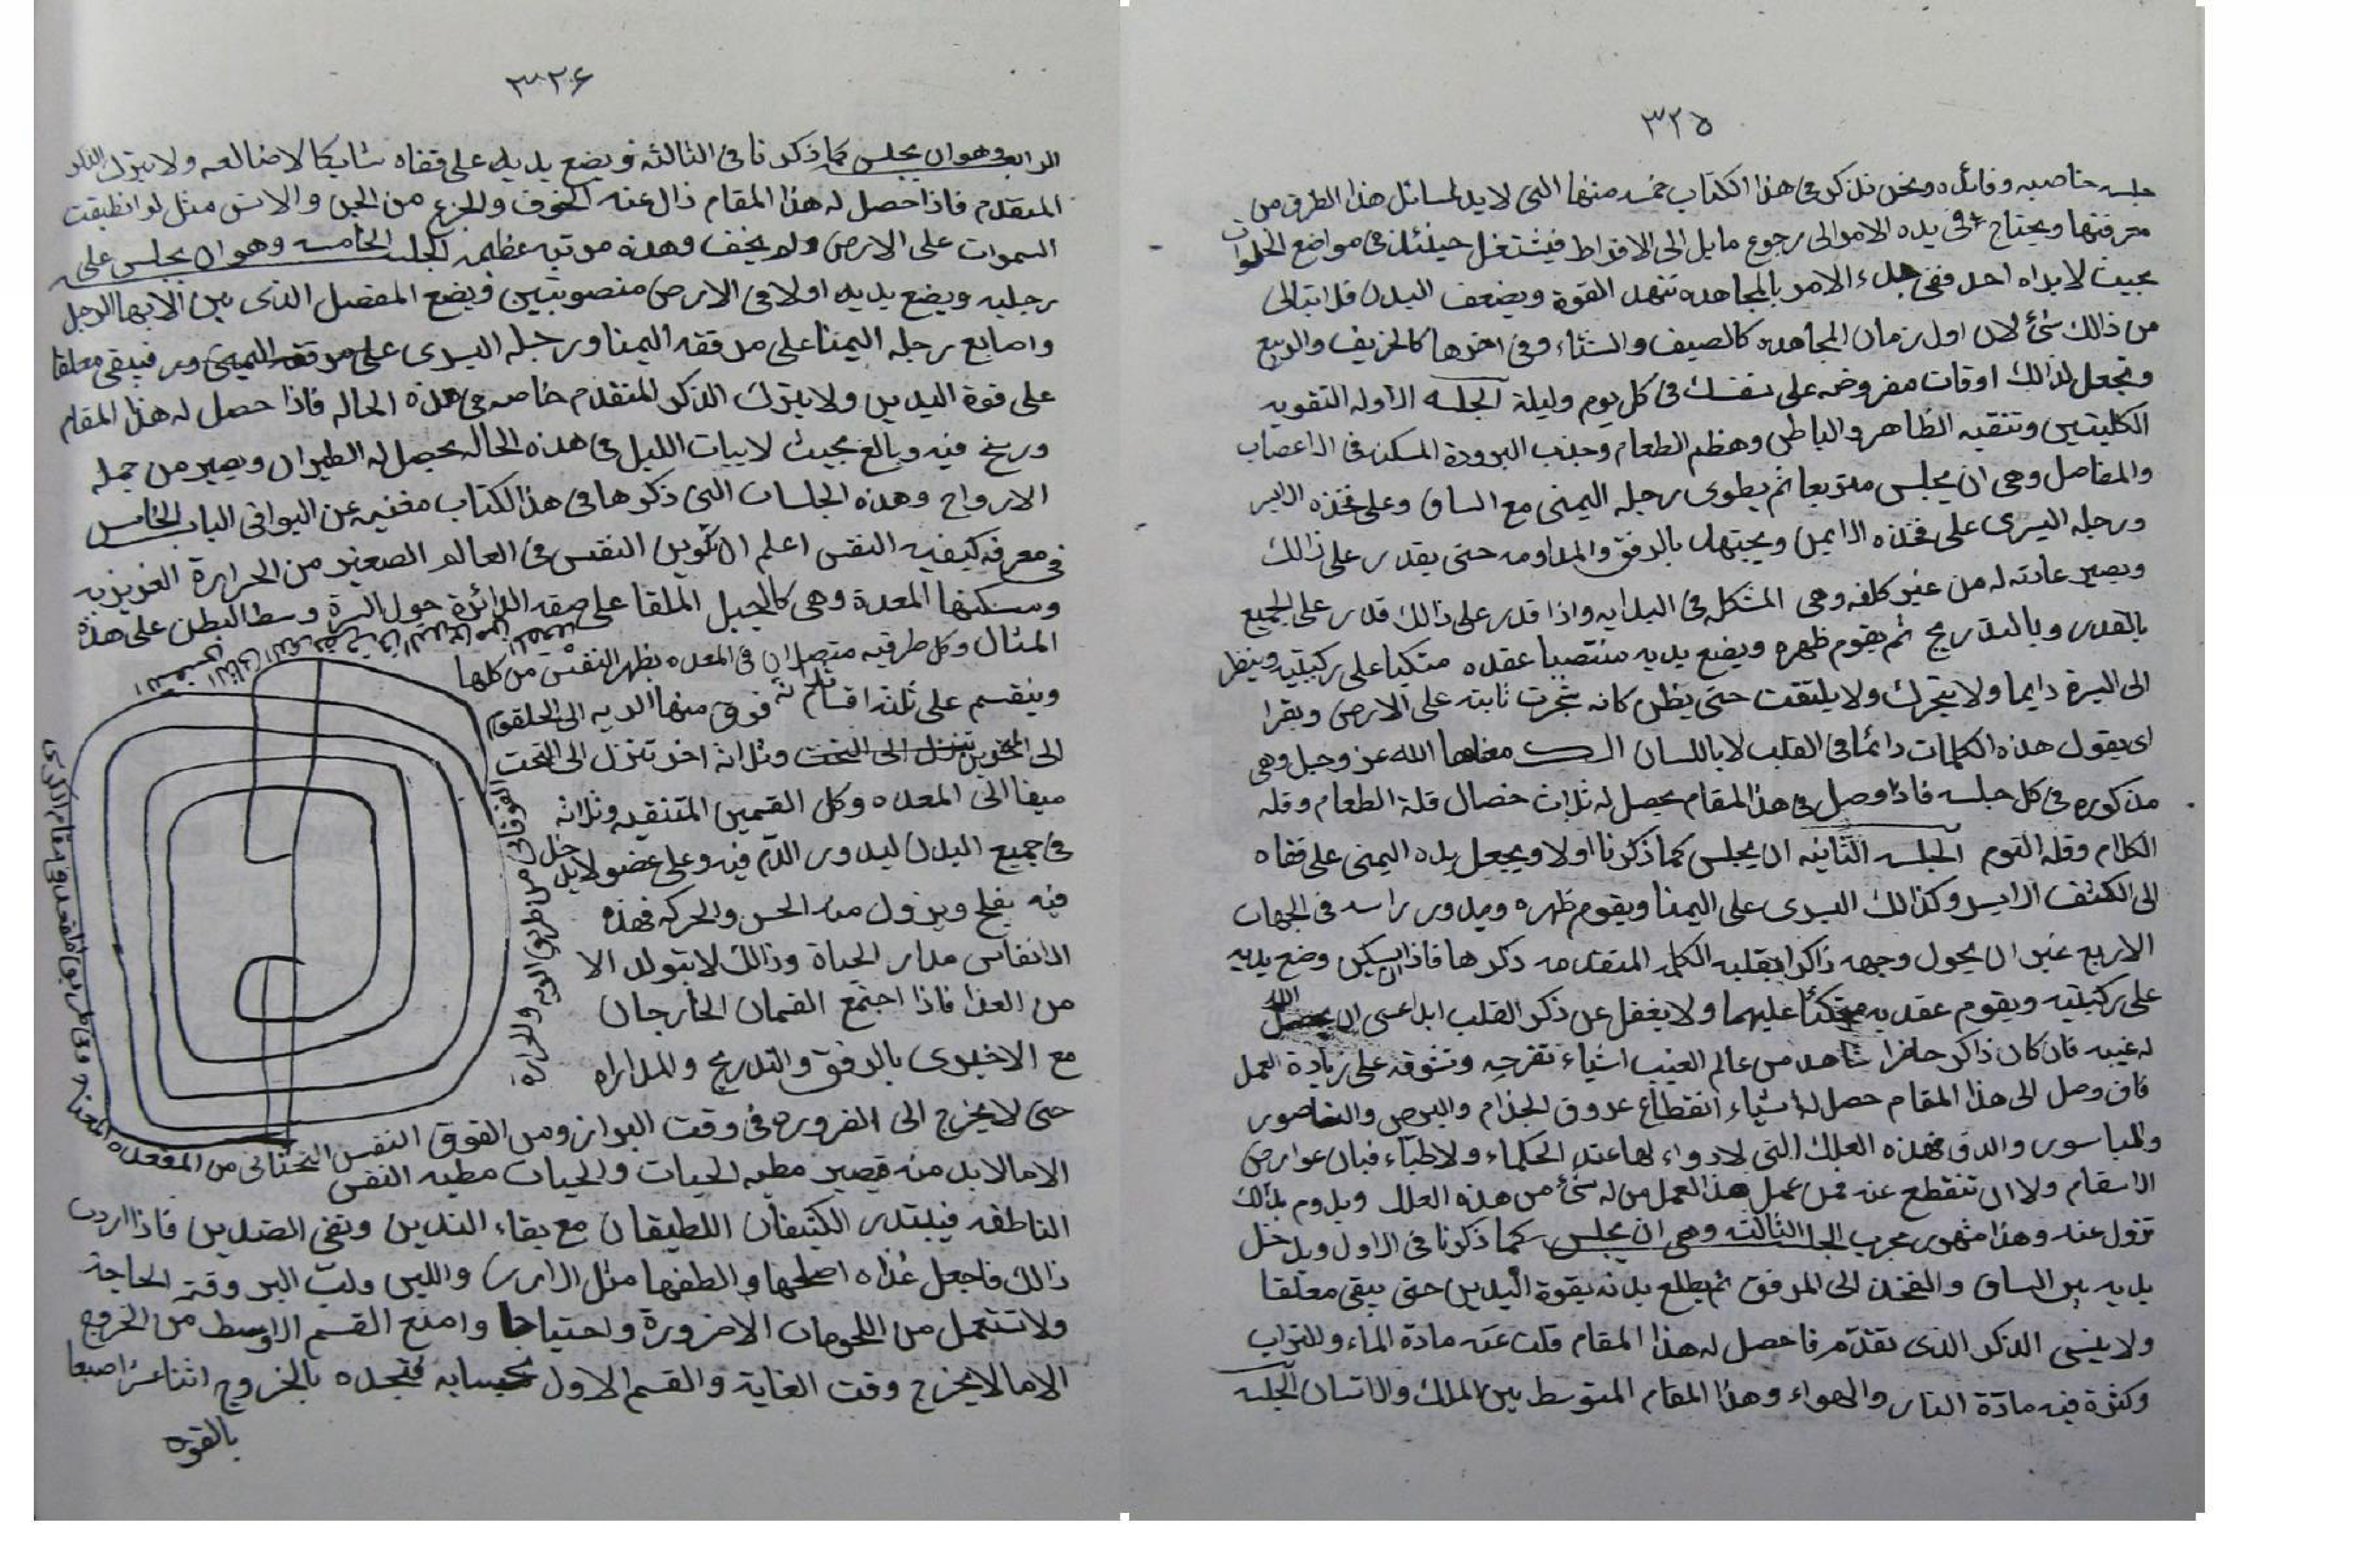 ٣٢٥
جلسه خاصيه وفائده ونحن نذكر فى هذا الكتاب خمسه منها التى لابد لسائل هذا الطرق من
معرفتها ويحتاج فى يده الامر الى رجوع مايل الى الافراط فيشتغل حينئذ فى مواضع الخلوات
بحيث لا يراه احد ففى بدء الامر بالمجاهده تنهد القوة ويضعف البدن قل ابتالى
من ذالك شئ لان اول زمان المجاهده كالصيف والشتاء وفى اخرها كالخريف والربيع
وتجعل لذالك اوقات مفروضه على نفسك فى كل يوم وليلة الجلسه الاوله التقويه
الكليتين وتنقيه الظاهر والباطن وهظم الطعام وجذب البرودة المسكنه فى الاعصاب
والمفاصل وهى ان يجلس متربعا ثم يطوى رجله اليمنى مع الساق وعلى فخذه الايسر
ورجله اليسرى على فخذه الايمن ويجتهد بالرفق والمداومه حتى يقدر على ذالك
ويصير عادته له من غير كلفه وهى المشكل فى البدايه واذا قدر على ذالك قدر على الجميع
بالقدر وبالتدريج ثم يقوم ظهره ويضع يديه منتصبا عقده متكيا على ركبتيه وينظر
الى السرة دايما ولا يتحرك ولا يلتفت حتى يظن كانه شجرت ثابته على الارض ويقرا
اى يقول هذه الكلمات دائما فى القلب لا باللسان الك معناها الله عز وجل وهى
مذكوره فى كل جلسه فاذا وصل فى هذا المقام يحصل له ثلاث خصال قلة الطعام وقله
الكلام وقله النوم الجلسه الثانيه ان يجلس كما ذكرنا اولا ويجعل يده اليمنى على قفاه
الى الكتف الايسر وكذالك اليسرى على اليمنا ويقوم ظهره ويدور راسه فى الجهات
الاربع غير ان يحول وجهه ذاكرا بقلبه الكلمه المتقدمه ذكرها فاذا سكن وضع يديه
على ركبتيه ويقوم عقديه متكئا عليهما ولا يغفل عن ذكر القلب ابدا عسى ان يحصل
له غيبه فان كان ذاكر حاضرا شاهد من عالم الغيب اشياء تفرحه وتشوقه على زيادة العمل
فان وصل الى هذا المقام حصل له اشياء انقطاع عروق الجذام والبرص والناصور
والباسور والدق فهذه العلل التى لا دواء لها عند الحكماء ولاطباء فبان عوارض
الاسقام ولا ان تنقطع عنه فمن عمل هذا العمل من له شئ من هذه العلل ويدوم بذالك
تزول عنه وهذا مشهور مجرب الجلسه الثالثه وهى ان يجلس كما ذكرنا فى الاول ويدخل
يديه بين الساق والفخذ الى المرفق ثم يطلع بدنه بقوة اليدين حتى يبقى معلقا
ولا ينسى الذكر الذى تقدم فاحصل له هذا المقام قلت عنه مادة الماء والتراب
وكثرة فيه مادة النار والهواء وهذا المقام المتوسط بين الملك والانسان الجلسه
٣٢٦
الرابعه وهو ان يجلس كما ذكرنا فى الثالثه ويضع يديه على قفاه شابكا لاصابعه ولا يترك الذكر
المتقدم فاذا حصل له هذا المقام زال عنه الخوف والجزع من الجن والانس مثل لو انطبقت
السموات على الارض ولم يخف وهذه مرتبه عظيمه الجلسه الخامسه وهو ان يجلس على
رجليه ويضع يديه اولا فى الارض منصوبتين ويضع المفصل الذى بين الابهام الرجل
واصابع رجله اليمنا على مرفقه اليمنا ورجله اليسرى على مرفقه اليمنى فيبقى معلقا
على قوة اليدين ولا يترك الذكر المتقدم خاصه فى هذه الحاله فاذا حصل له هذا المقام
ورسخ فيه وبالغ بحيث لا يبات الليل فى هذه الحاله يحصل له الطيران ويصير من جمله
الارواح وهذه الجلسات التى ذكرها فى هذا الكتاب مغنيه عن البواقى الباب الخامس
فى معرفه كيفيه النفس اعلم ان تكوين النفس فى العالم الصغير من الحرارة الغريزيه
ومسكنها المعدة وهى كالحبل الملقا على صفه الدائرة حول السرة وسط البطن على هذه
المثال وكل طرفيه متصلان فى المعده يظهر النفس من كلها
وينقسم على ثلثه اقسام ثلاثه فوق منها الديه الى الحلقوم
الى المنخرين تتنزل الى التحت وثلاثه اخر تنزل الى التحت
ميقا الى المعده وكل القسمين المتنقيه وثلاثه
فى جميع البدن ليدور الدم فيه وعلى عضو لا يدخل
فيه يفلج ويزول منه الحس والحركه فهذه
الانفاس مدار الحياة وذالك لا يتولد الا
من الغذا فاذا اجتمع القسمان الخارجان
مع الاخيرى بالرفق والتدريج والمداراه
حتى لا يخرج الى الضروره فى وقت البراز ومن الفوق النفس
النفس التحتانى من المقعده
الفوقانى من طريق الريه والحرارة
الاما لابد منه فيصير مطيه الحيات والحيات مطيه النفس
الناطقه فيبتدر الكثيفان اللطيفان مع بقاء الندين ونفى الضدين فاذا اردت
ذالك فاجعل غذاه اصلحها والطفها مثل الارز واللبن ولت البر وقته الحاجة
ولا تستعمل من اللحومات الا ضرورة واحتياجا وامنع القسم الاوسط من الخروج
الاما لا يخرج وقت الغاية والقسم الاول بحسابه فتجده بالخروج اثنا عشر اصبعا
بالقوة